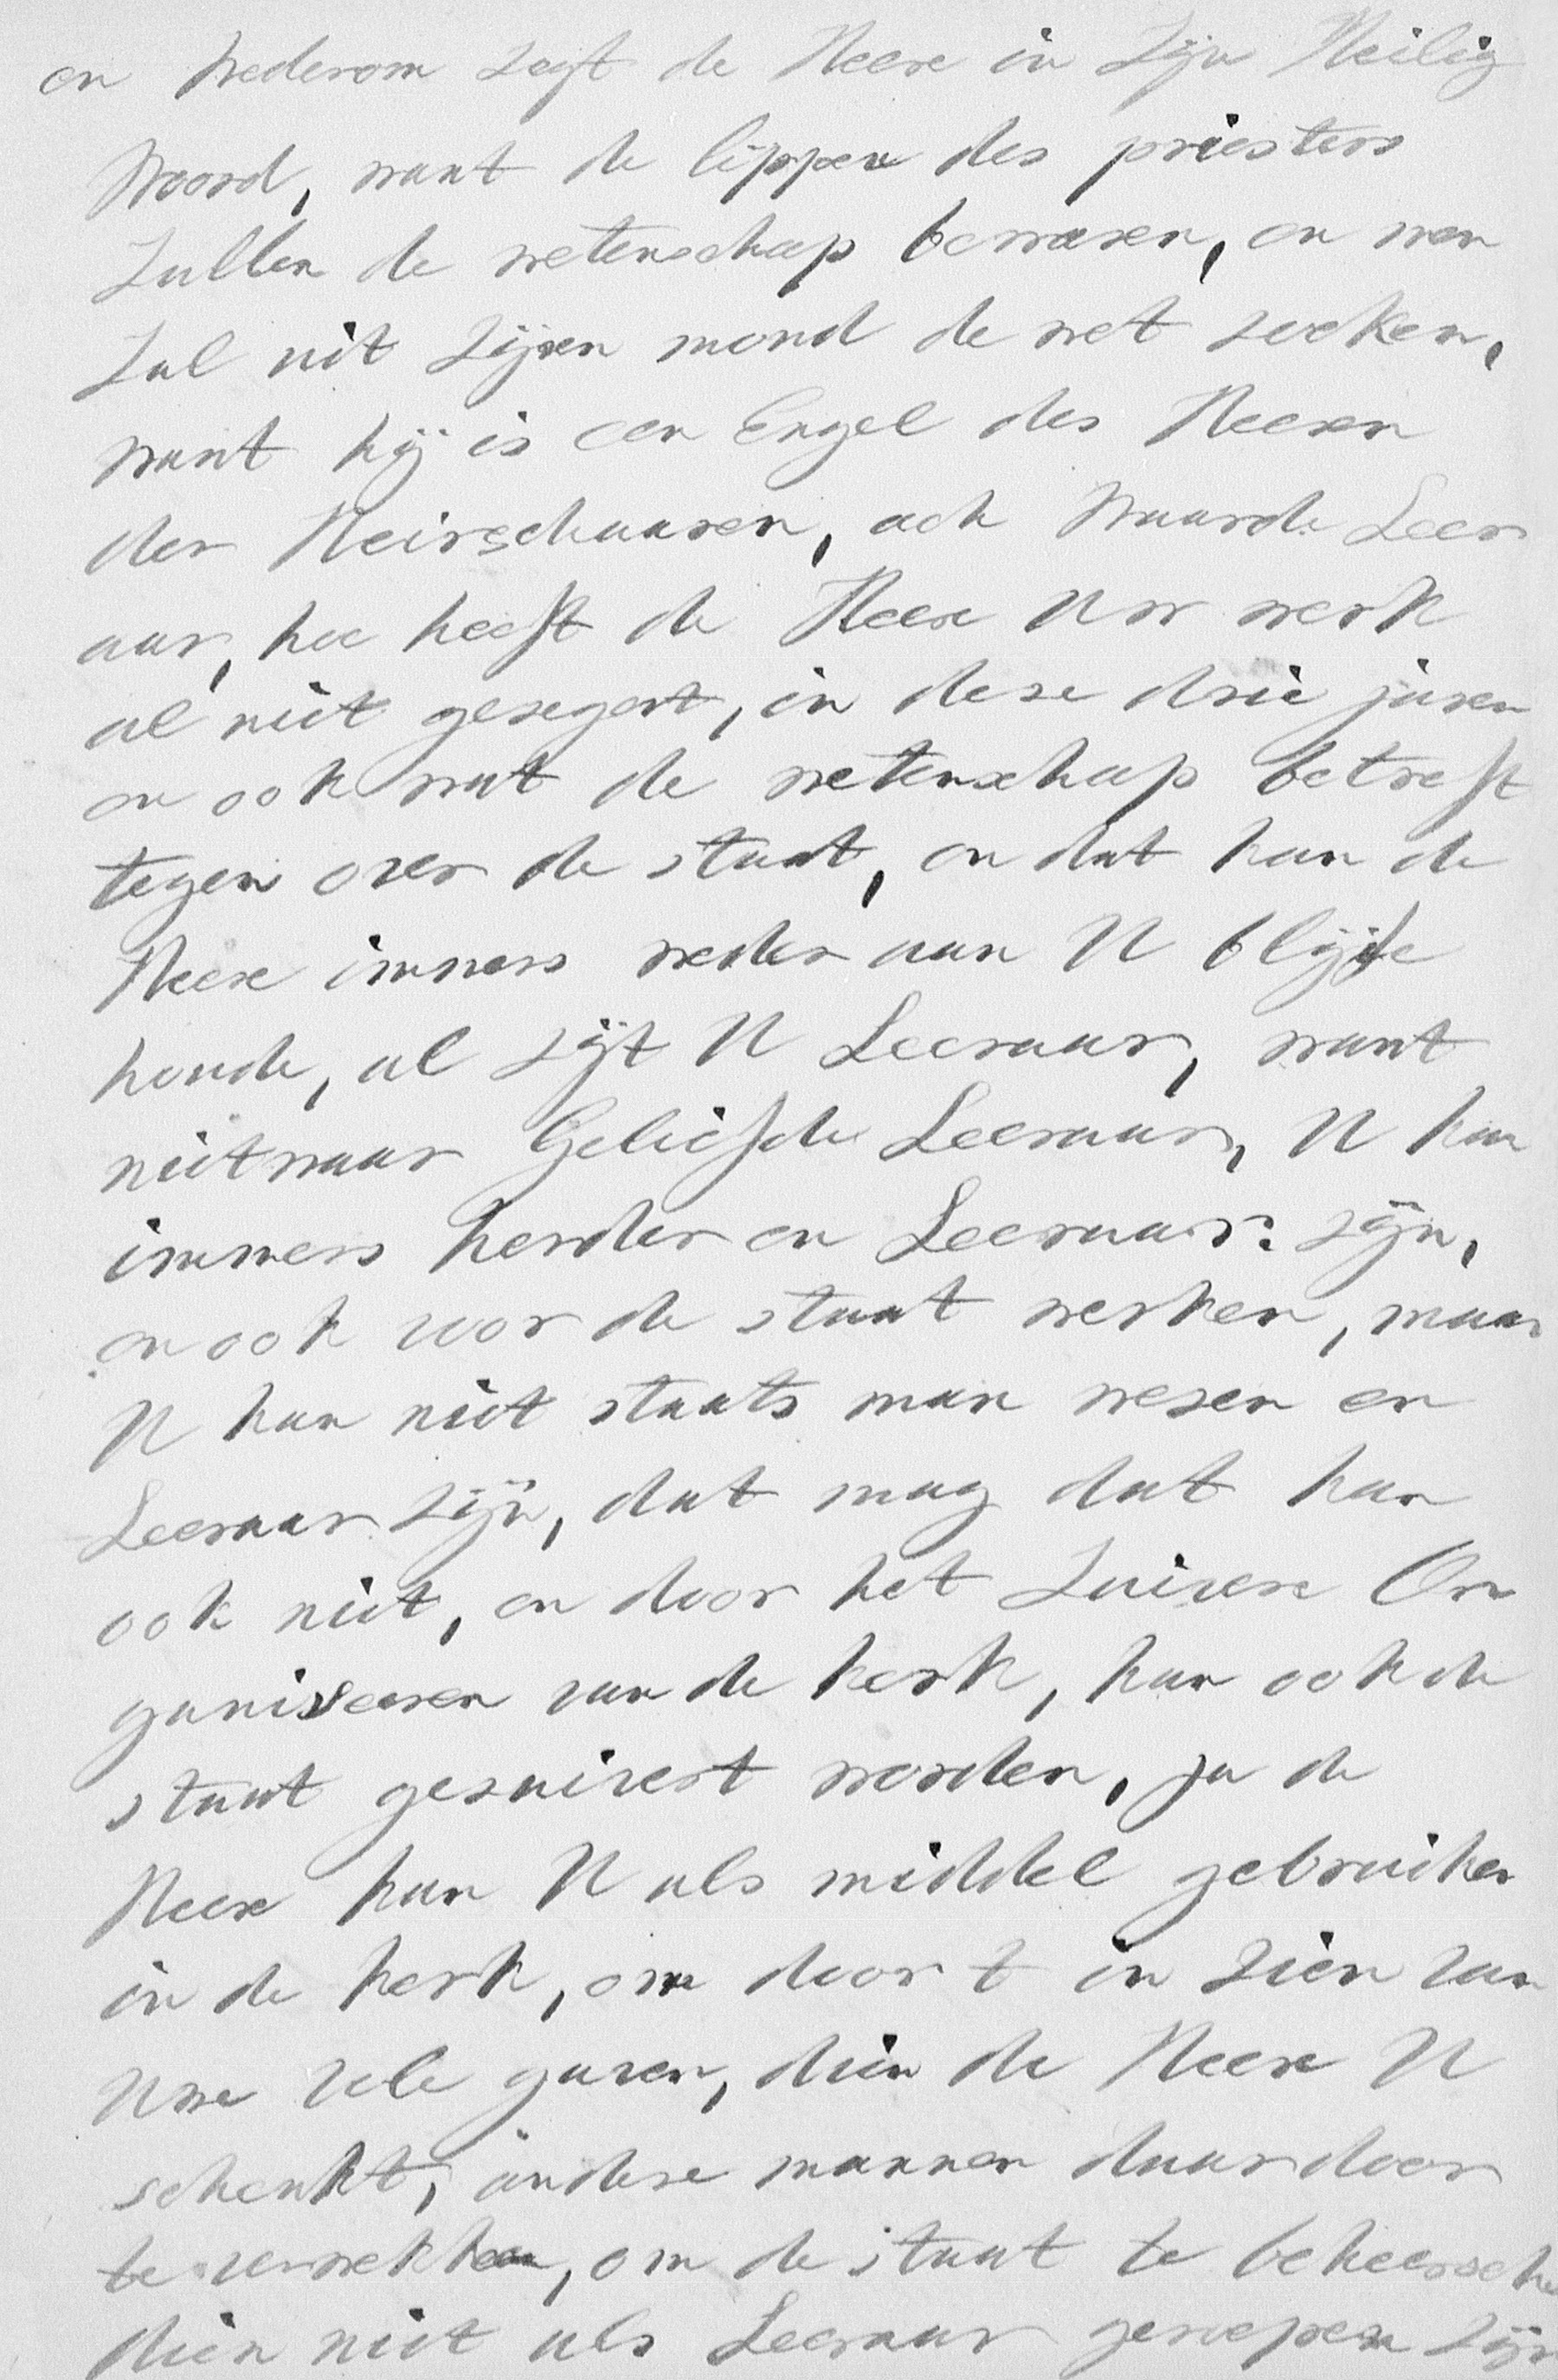 en wederom zegt de Heere in Zijn Heilig
Woord, want de lippen des priesters
Zullen de wetenschap bewaren, en men
Zal uit Zijnen mond de wet zoeken,
want hij is een Engel des Heeren
der Heirschaaren, ach Waarde Leer
aar, hoe heeft de Heere Uw werk
al niet gezegent, in deze drie jaren
en ook wat de wetenschap betreft
tegen over de staat, en dat kan de
Heere immers weder aan U blijfe
houde, al zijt U Leeraar, want
nietwaar Geliefde Leeraar, U kan
immers herder en Leeraar zijn,
en ook voor de staat werken, maar
U kan niet staats man wezen en
Leeraar zijn, dat mag dat kan
ook niet, en door het Zuivere Or
ganiseeren van de kerk, kan ook de
staat gezuivert worden, ja de
Heere kan U als middel gebruiken
in de kerk, om door t in zien van
Uwe vele gaven, dien de Heere U
schenkt, andere mannen daardoor
te verwekken, om de staat te beheersche
dien niet als Leeraar geroepen zijn